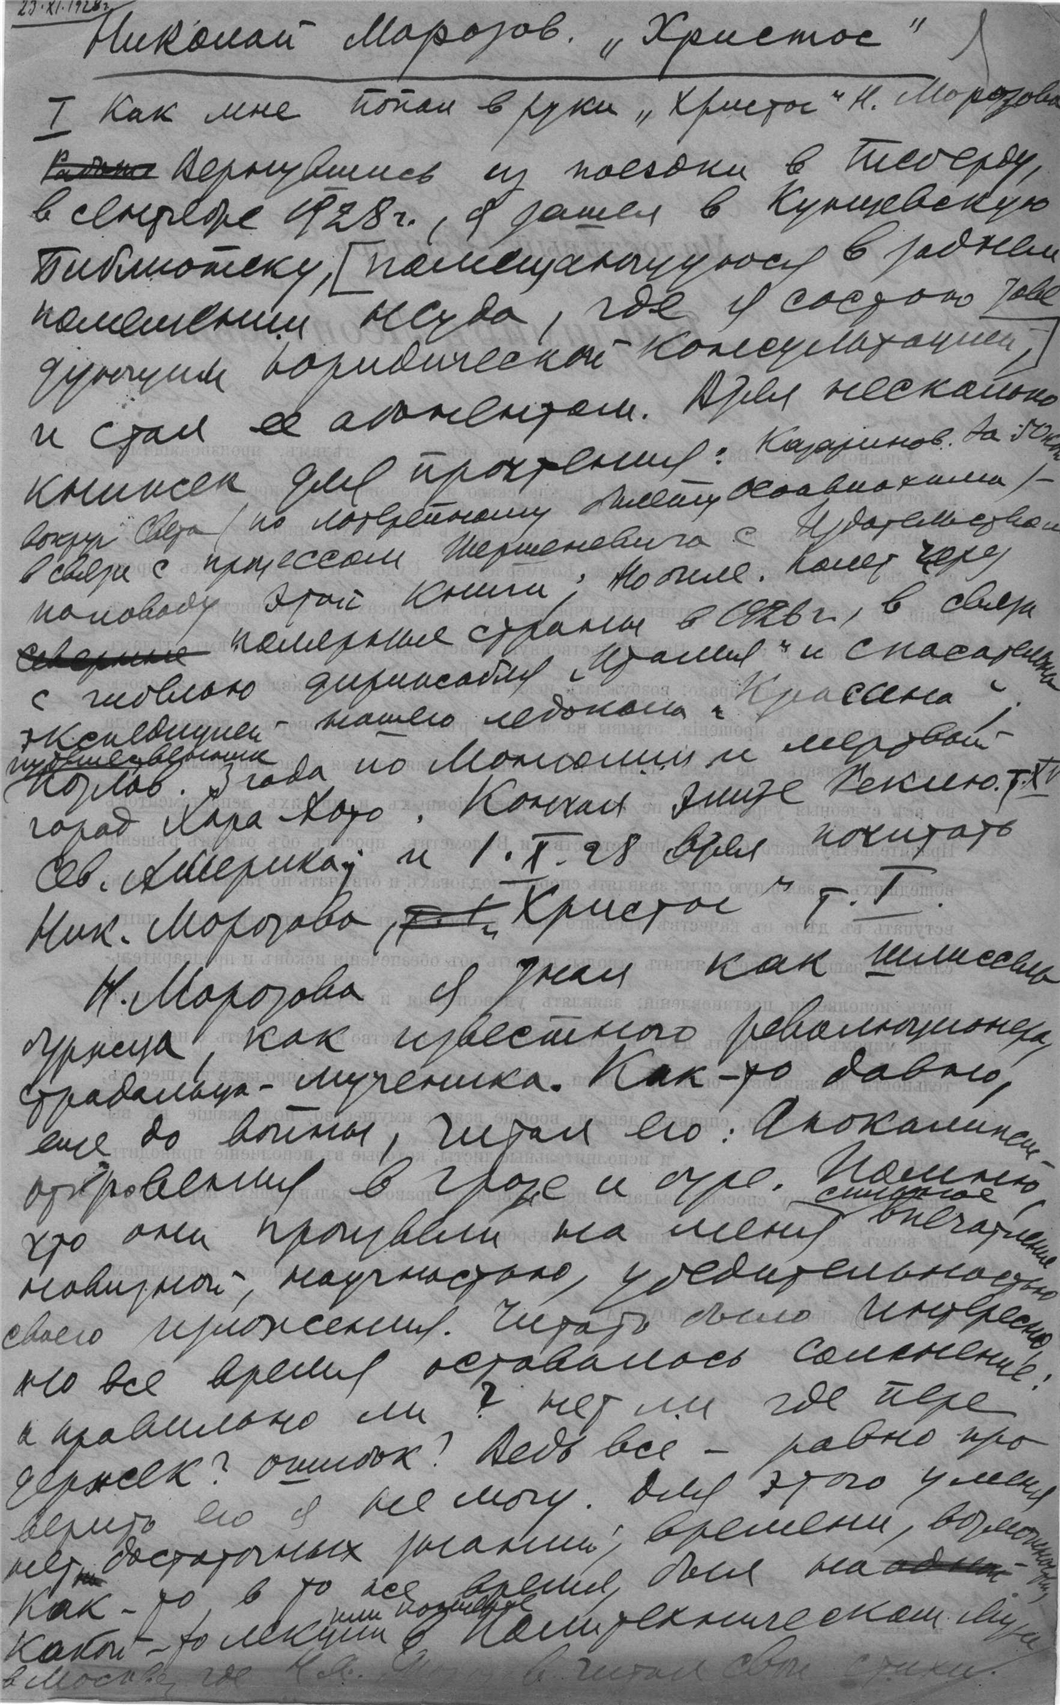 23.XI.1928г.
Николай Морозов. „Христос"
I Как мне попал в руки „Христос" Н. Морозова
Вернувшись из поездки в Теберду,
в сентябре 1928 г., я зашел в Кунцевскую
библиотеку, [помещающуюся в заднем
помещении нсуда, где я состою заве
дующим юридической консультацией,]
и стал ее абонентом. Взял несколько
книжек для прочтения: Казаринов. За 50 коп
вокруг света (по лотерейному билету Осоавиахима) –
в связи с процессом Шершеневича с Издательством
по поводу этой книги; Нобиле. Полет через
северные полярные страны в 1926 г., в связи
с гибелью дирижабля „Италия" и спасательной
экспедицией нашего ледокола „Красина",
путешественника
Козлов. 3 года по Монголии и мертвой
город Хара Хото. Кончал Элизе Реклю. т. XV
Сев. Америка; и 1.X.28 взял почитать
Ник. Морозова, т. 1 „Христос" т. I.
Н. Морозова я знал как шлиссель
буржца, как известного революционера,
страдальца-мученика. Как-то давно,
еще до войны, читал его: Апокалипсис
откровения в грозе и буре. Помню,
сильное
что они произвели на меня впечатление
новизной, научностью, убедительностью
своего изложения. Читать было интересно,
но все время оставалось сомнение:
а правильно ли? нет ли где пере
держек? ошибок? Ведь все – равно про
верить его я не могу. Для этого у меня
нет достаточных знаний, времени, возможности,
Как-то, в то же время, был на одной
или
какой-то лекции в Политехническом Музее
в Москве, где Н.А. Морозов читал свои стихи.